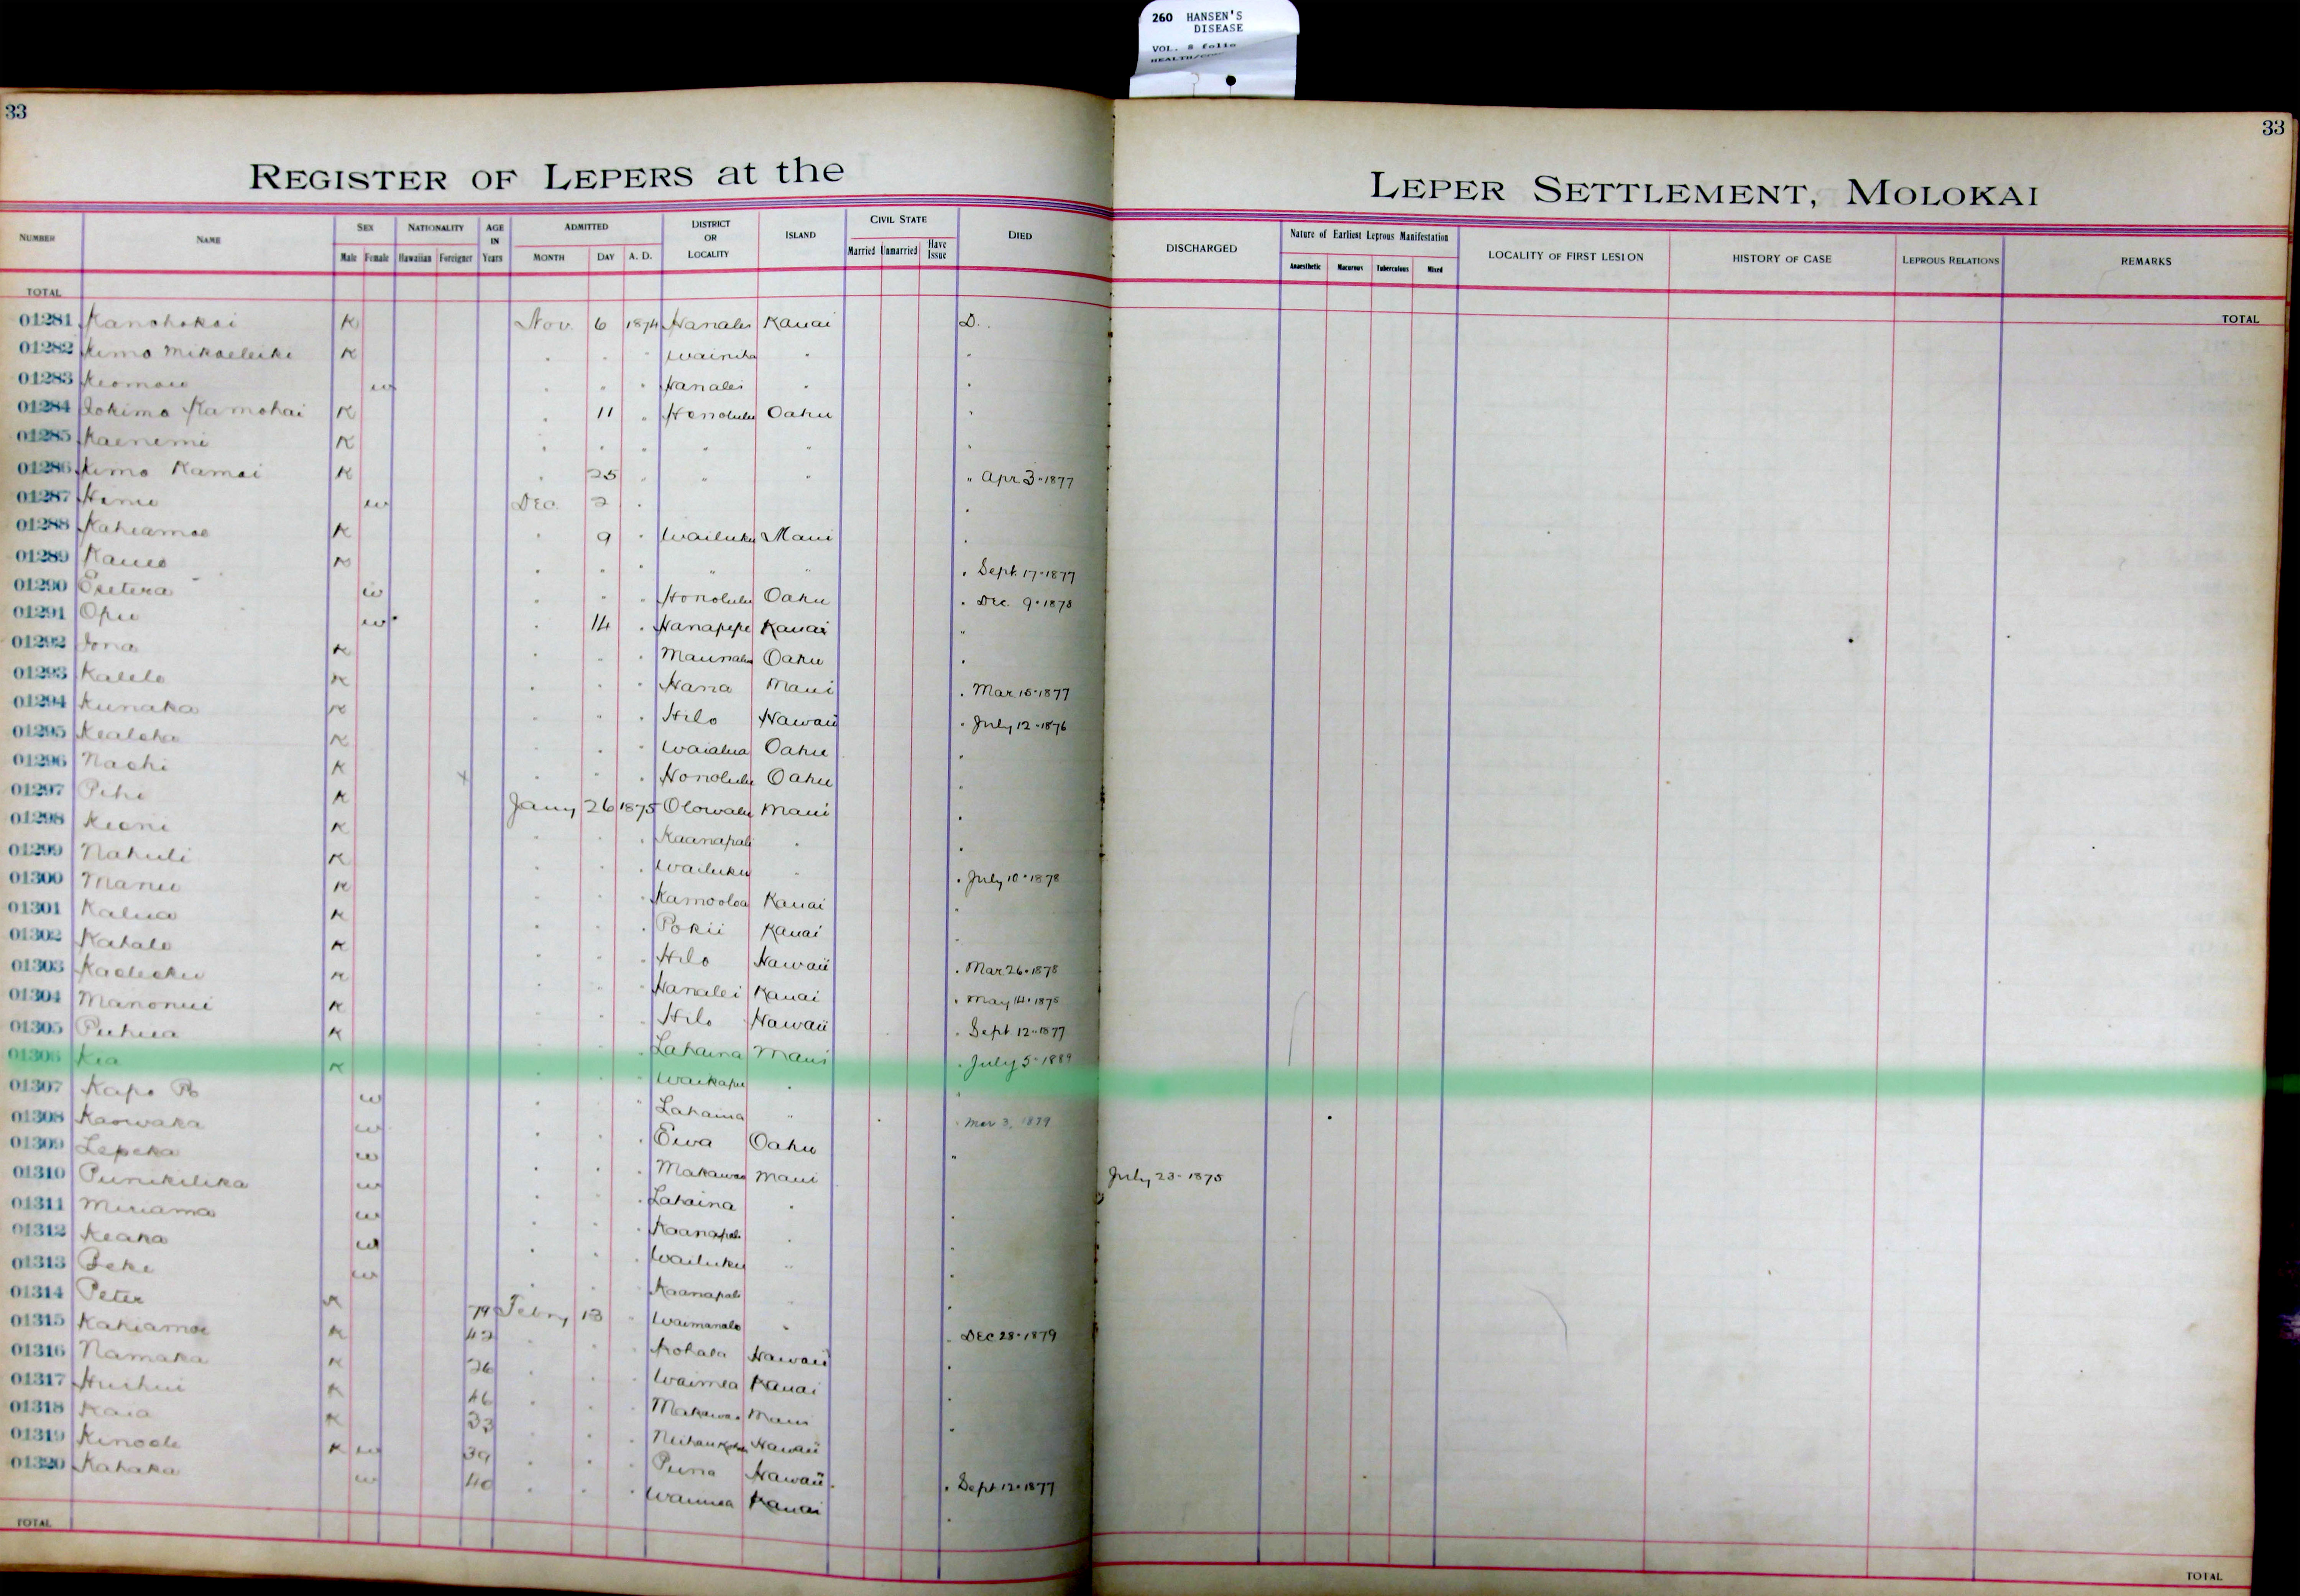 260 HANSEN'S
DISEASE
VOL. 8 folio
33
33
REGISTER OF LEPERS at the LEPER SETTLEMENT, MOLOKAI
NUMBER NAME SEX NATIONALITY AGE IN Years ADMITTED DISTRICT OR LOCALITY ISLAND CIVIL STATE DIED DISCHARGED Nature of Earliest Leprous Manifestation LOCALITY OF FIRST LESION HISTORY OF CASE LEPROUS RELATIONS REMARKS
Male Female Hawaiian Foreigner MONTH DAY A. D. Married Unmarried Have Issue Anaesthetic Macurous Tuberculous Mixed
TOTAL TOTAL
01281 Kanohokai K Nov. 6 1874 Hanalei Kauai D.
01282 Kimo Mikaeleike K " " " Wainiha " "
01283 Keomaie w " " " Hanalei " "
01284 Iokimo Kamohai K " 11 " Honolulu Oahu "
01285 Kaenemi K " " " " " "
01286 Kimo Kamai K " 25 " " " " Apr 3-1877
01287 w Dec. 2 " "
01288 Kahiamoe K " 9 " Wailuku Maui "
01289 Kaueo K " " " " " " Sept. 17-1877
01290 w " " " Honolulu Oahu " Dec. 9-1878
01291 Opu w " 14 " Hanapepe Kauai "
01292 Iona K " " " Oahu "
01293 Kalelo K " " " Hana Maui " Mar 15-1877
01294 Kunaka K " " " Hilo Hawaii " July 12-1876
01295 Kealoha K " " " Waialua Oahu "
01296 Nachi K x " " " Honolulu Oahu "
01297 Pihi K Jany 26 1875 Olowalu Maui "
01298 Keoni K " " " Kaanapali " "
01299 Nahuli K " " " Wailuku " " July 10-1878
01300 Manu K " " " Kamooloa Kauai "
01301 Kalua K " " " Pokii Kauai "
01302 Kahalo K " " " Hilo Hawaii " Mar 26-1878
01303 K " " " Hanalei Kauai " May 14-1875
01304 Manonui K " " " Hilo Hawaii " Sept 12-1877
01305 Puhua K " " " Lahaina Maui " July 5-1889
01306 Kia K " " " Waikapu " "
01307 Kapo Po w " " " Lahaina " " Mar 3, 1879
01308 Kaowaka w " " " Ewa Oahu "
01309 Lepeka w " " " Makawao Maui July 23-1875
01310 Punikilika w " " " Lahaina " "
01311 Miriama w " " " Kaanapali " "
01312 Keaka w " " " Wailuku " "
01313 Beke w " " " Kaanapali " "
01314 Peter K 79 Febry 13 " Waimanalo " " Dec 28-1879
01315 Kahiamoe K 42 " " " Kohala Hawaii "
01316 Namaka K 26 " " " Waimea Kauai "
01317 Huihui K 46 " " " Makawao Maui "
01318 Kaia K 33 " " " Hawaii
01319 Kinoole K w 39 " " " Puna Hawaii " Sept 12-1877
01320 Kahaka w 40 " " " Waimea Kauai "
TOTAL TOTAL